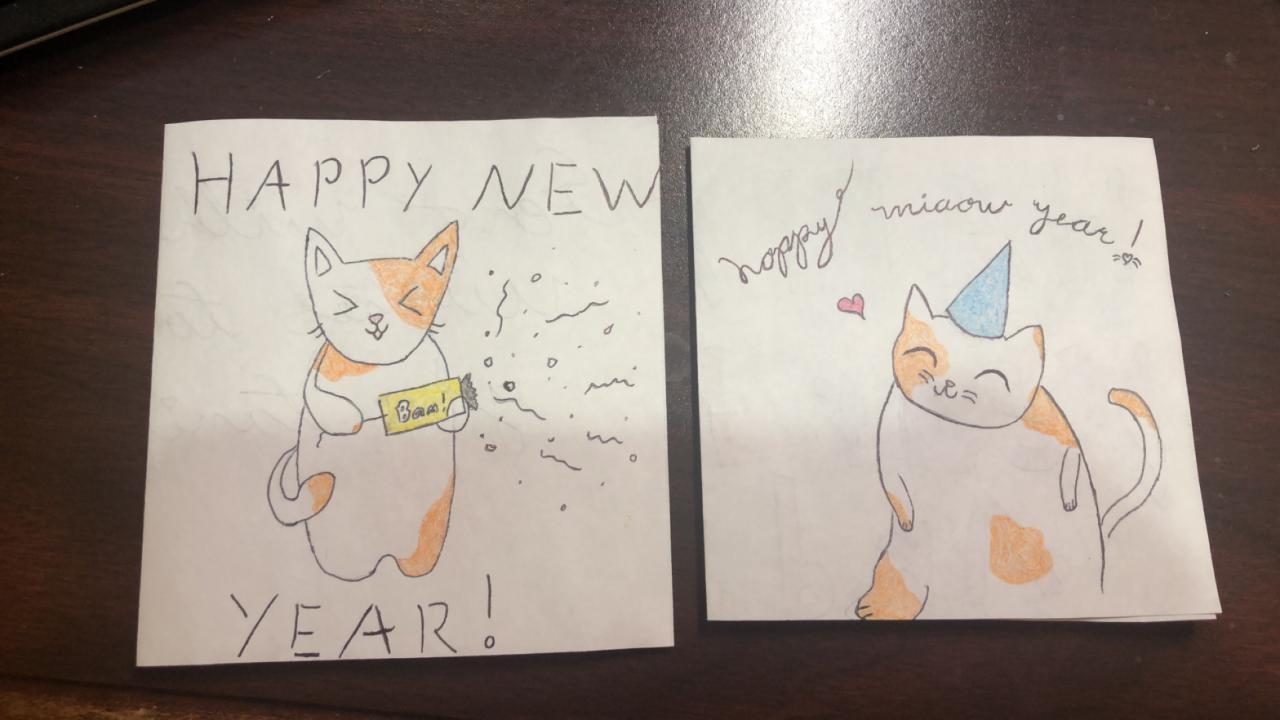 HAPPY NEW
Bam!
YEAR!
happy miaow year!